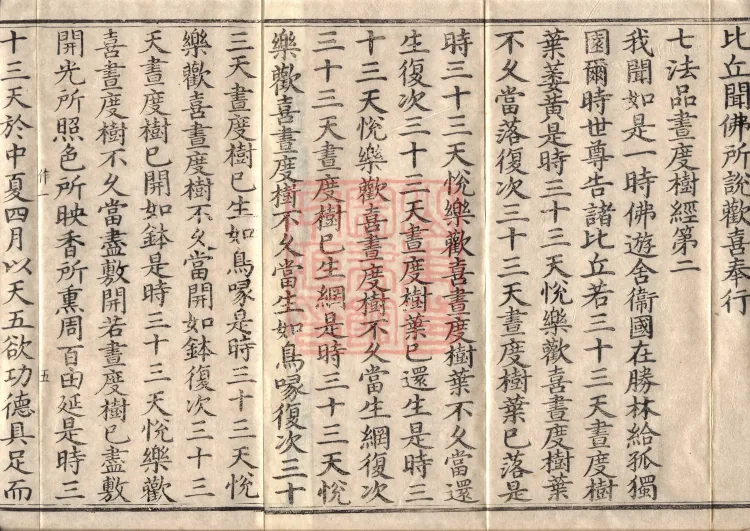 比丘聞佛所說歡喜奉行
七法品晝度樹經第二
我聞如是一時佛遊舍衛國在勝林給孤獨
園爾時世尊告諸比丘若三十三天晝度樹
葉萎黃是時三十三天悅樂歡喜晝度樹葉
不久當落復次三十三天晝度樹葉已落是
時三十三天悅樂歡喜晝度樹葉不久當還
生復次三十三天晝度樹葉已還生是時三
十三天悅樂歡喜晝度樹不久當生網復次
三十三天晝度樹已生網是時三十三天悅
樂歡喜晝度樹不久當生如鳥喙復次三十
三天晝度樹已生如鳥喙是時三十三天悅
樂歡喜晝度樹不久當開如鉢復次三十三
天晝度樹已開如鉢是時三十三天悅樂歡
喜晝度樹不久當盡敷開若晝度樹已盡敷
開光所照色所映香所熏周百由延是時三
作一
五
十三天於中夏四月以天五欲功德具足而